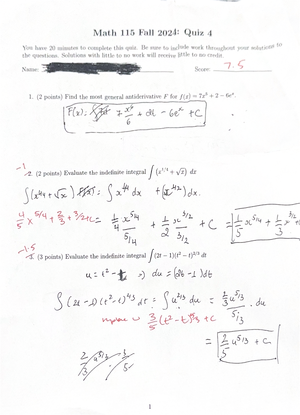 Math 115 Fall 2024: Quiz 4
You have 20 minutes to complete this quiz. Be sure to include work throughout your solutions to
the questions. Solutions with little to no work will receive little to no credit.
Name: Score: 7.5
1. (2 points) Find the most general antiderivative F for f(x) = 7x⁵ + 2 − 6eˣ.
F(x) = 7 x⁶/6 + 2x − 6eˣ + C
-1
2. (2 points) Evaluate the indefinite integral ∫(x^{1/4} + √x) dx
∫(x^{1/4} + √x) dx = ∫ x^{1/4} dx + ∫ x^{1/2} dx.
4/5 x^{5/4} + 2/3 x^{3/2} + C = 1/4 x^{5/4}/(5/4) + 1/2 x^{3/2}/(3/2) + C = 1/5 x^{5/4} + 1/3 x^{3/2} +
-1.5
3. (3 points) Evaluate the indefinite integral ∫(2t − 1)(t² − t)^{2/3} dt
u = t² − t ⇒ du = (2t − 1) dt
∫ (2t − 1)(t² − t)^{2/3} dt = ∫ u^{2/3} du = 2/3 u^{5/3}/(5/3) . du
3/5 (t² − t)^{5/3} + C
= 2/5 u^{5/3} + C
1